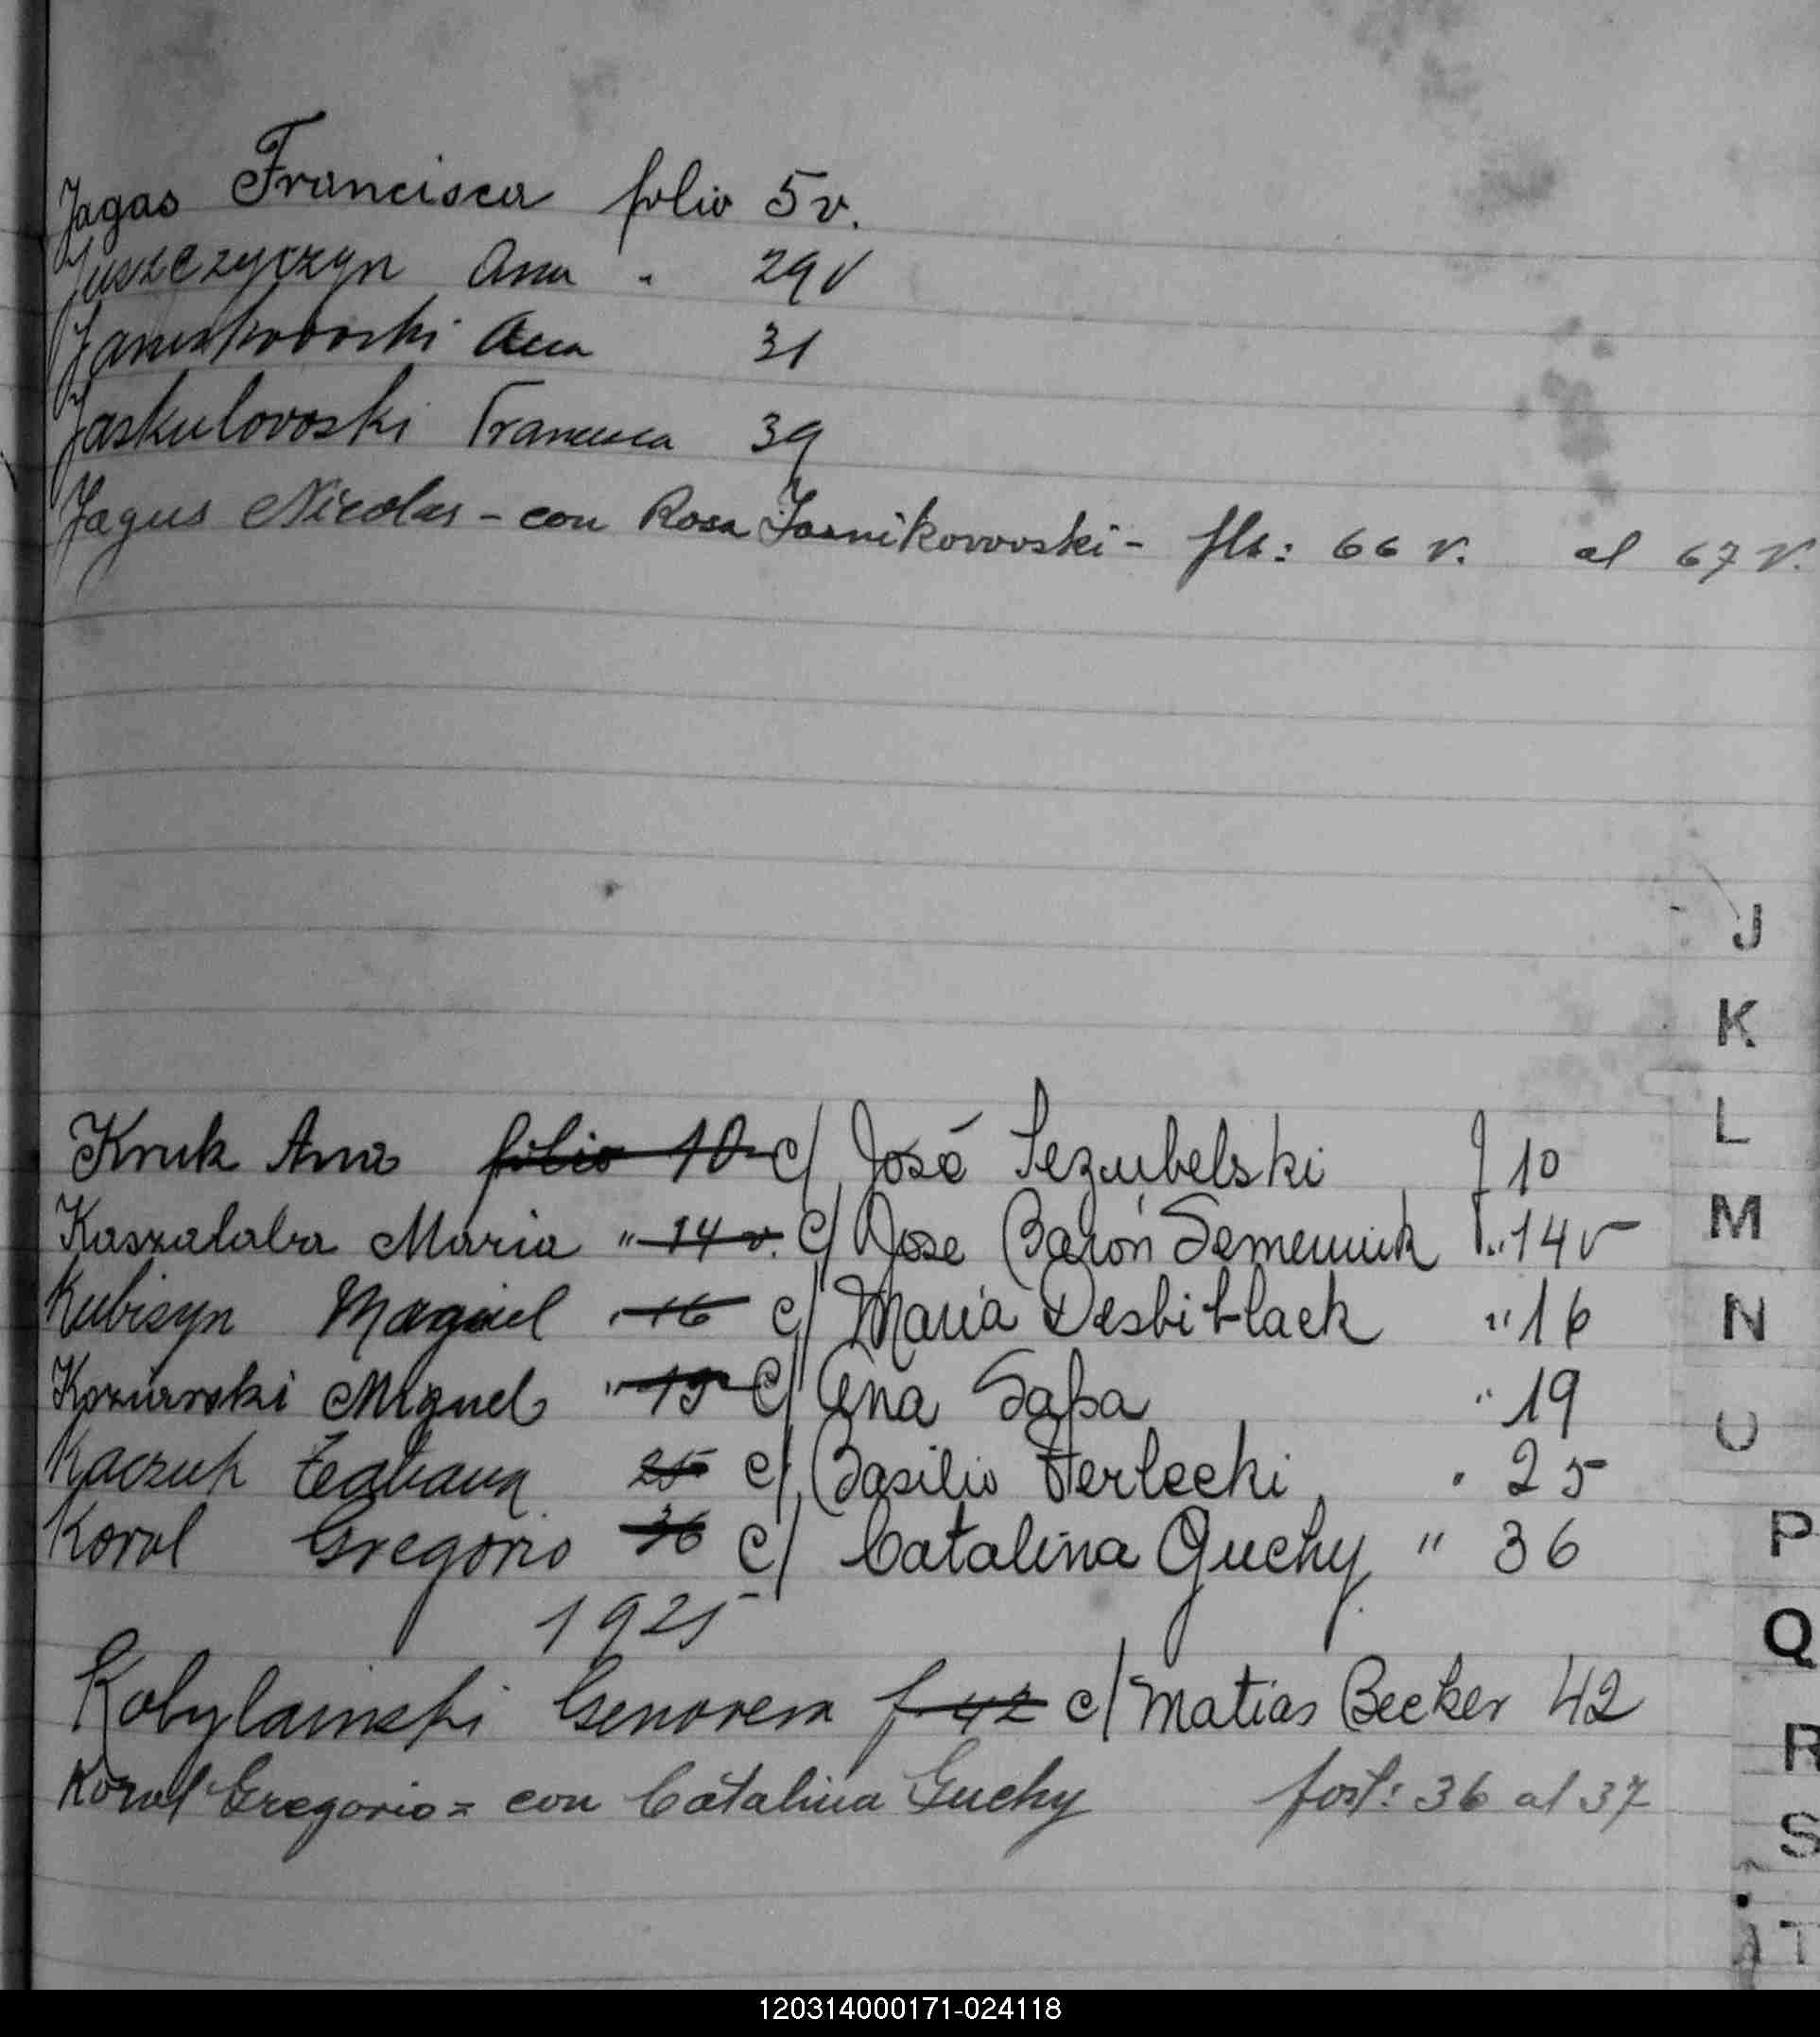 Jagas Francisca folio 5v.
Juszczyczyn Ana " 29v
Ana 31
Jaskulowoski Francisca 39
Jagus Nicolas - con Rosa Jasnikowoski - fls: 66 v. al 67 v.
J
K
Kruk Ana folio 10 c/ José Sezubelski f 10
L
Kaszalaba Maria " 14 v. c/ Jose Barón Semeniuk f.. 14v
M
Kubisyn Maguel " 16 c/ Maria " 16
N
Miguel " 19 c/ Ana Sapa " 19
O
Kaczuk 25 c/ Basilio Herlecki " 25
Korol Gregorio 36 c/ Catalina Guchy " 36
P
1925
Q
Kobylainski Genovera f 42 c/ Matias Becker 42
R
Korol Gregorio = con Catalina Guchy 36 al 37
S
T
120314000171-024118